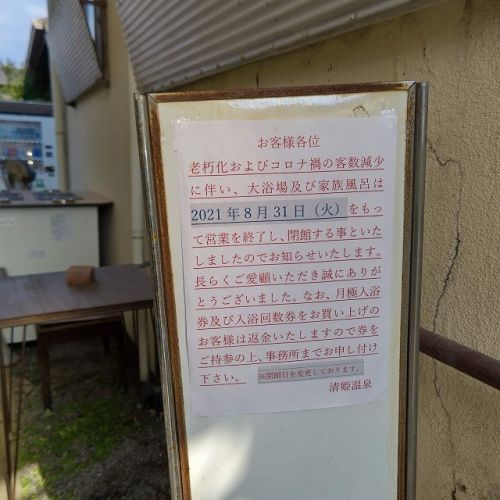 お客様各位
老朽化およびコロナ禍の客数減少
に伴い、大浴場及び家族風呂は
2021年8月31日（火）をもっ
て営業を終了し、閉館する事といた
しましたのでお知らせいたします。
長らくご愛顧いただき誠にありが
とうございました。なお、月極入浴
券及び入浴回数券をお買い上げの
お客様は返金いたしますので券を
ご持参の上、事務所までお申し付け
下さい。 ※閉館日を変更しております。
清姫温泉